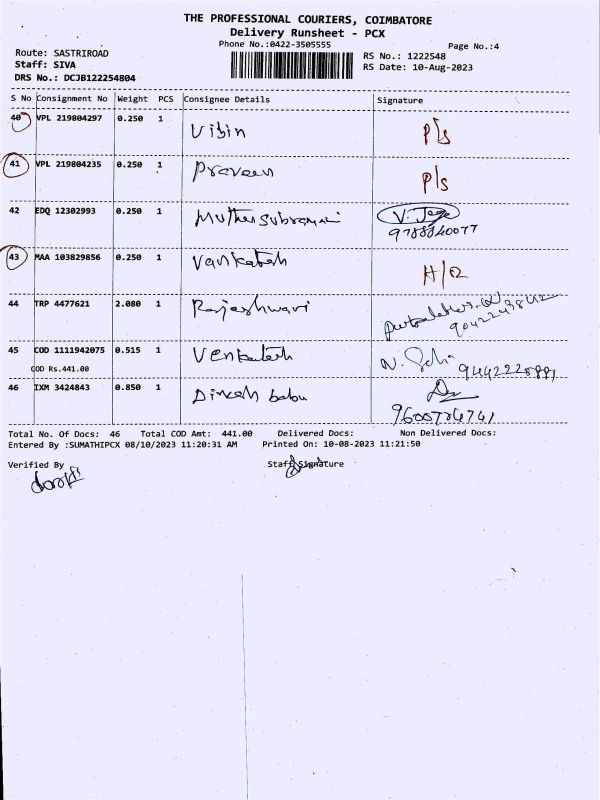 THE PROFESSIONAL COURIERS, COIMBATORE
Delivery Runsheet - PCX
Phone No.:0422-3505555
Page No.:4
Route: SASTRIROAD
RS No.: 1222548
Staff: SIVA
RS Date: 10-Aug-2023
DRS No.: DCJB122254804
S No Consignment No Weight PCS Consignee Details Signature
40 VPL 219804297 0.250 1 Vibin P/s
41 VPL 219804235 0.250 1 Praveen P/s
42 EDQ 12302993 0.250 1 Muthusubramani V. Jega
9788840077
43 MAA 103829856 0.250 1 Vankatesh H/O
44 TRP 4477621 2.080 1 Rajeshwari
45 COD 1111942075 0.515 1 Venkatesh
COD Rs.441.00
46 IXM 3424843 0.850 1 Dinesh babu
9600786741
Total No. Of Docs: 46 Total COD Amt: 441.00 Delivered Docs: Non Delivered Docs:
Entered By :SUMATHIPCX 08/10/2023 11:20:31 AM Printed On: 10-08-2023 11:21:50
Verified By Staff Signature